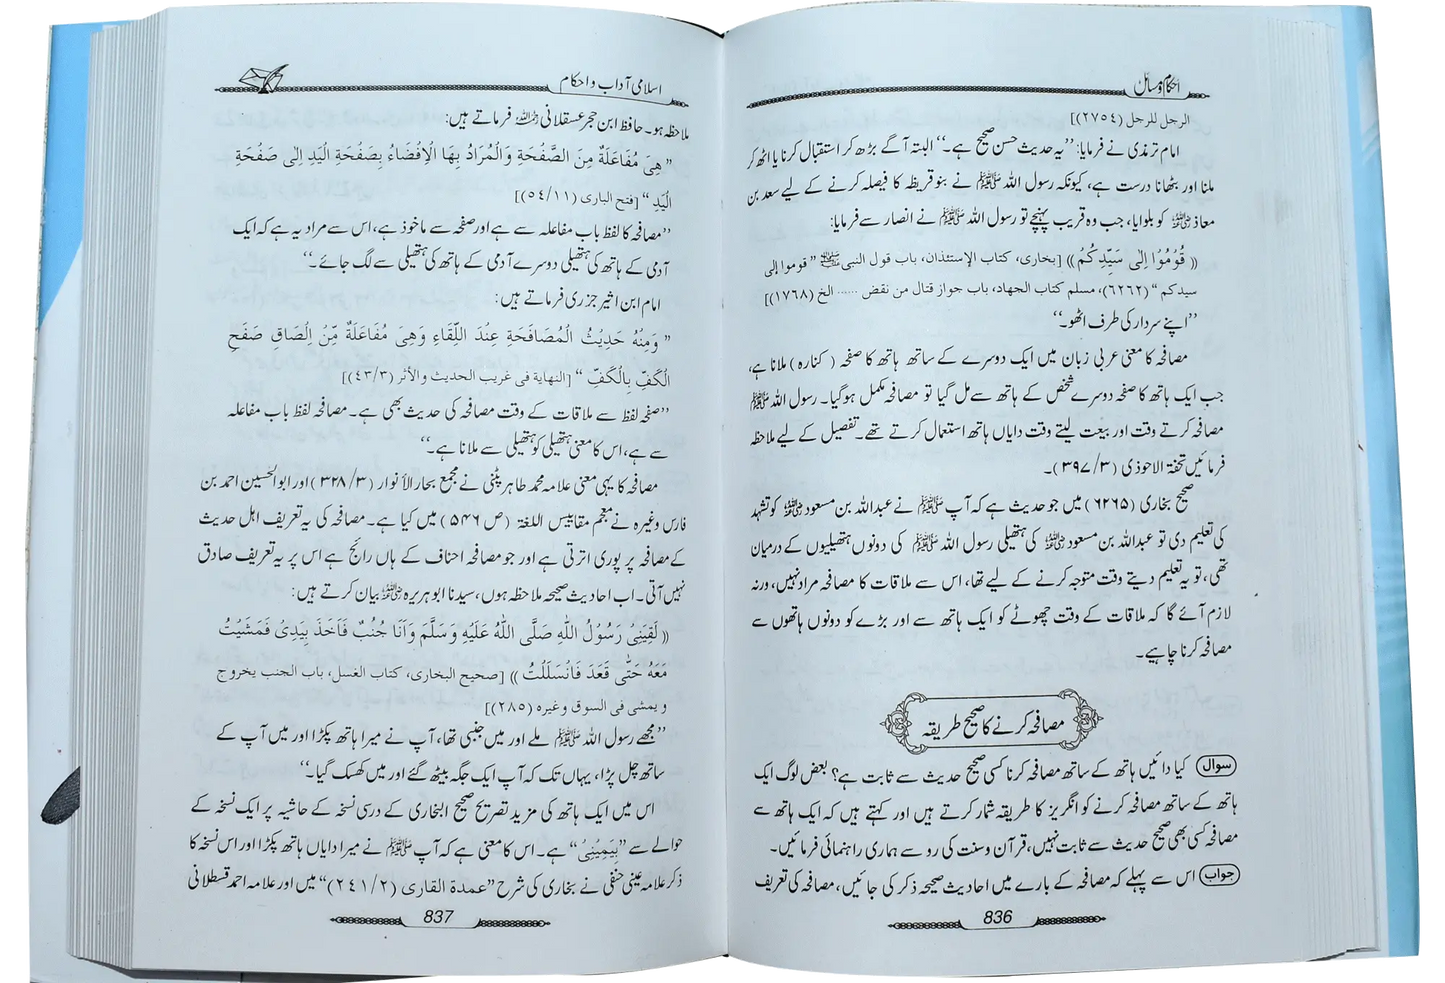 احکام و مسائل
الرجل للرجل (٢٧٥٤)]
امام ترمذی نے فرمایا: ’’یہ حدیث حسن صحیح ہے۔‘‘ البتہ آگے بڑھ کر استقبال کرنا یا اٹھ کر
ملنا اور بٹھانا درست ہے، کیونکہ رسول اللہ ﷺ نے بنو قریظہ کا فیصلہ کرنے کے لیے سعد بن
معاذ رضی اللہ عنہ کو بلوایا، جب وہ قریب پہنچے تو رسول اللہ ﷺ نے انصار سے فرمایا:
(( قُوْمُوْا اِلٰى سَيِّدِكُمْ )) [بخاری، کتاب الإستئذان، باب قول النبی ﷺ ” قوموا إلى
سیدکم “ (٦٢٦٢)، مسلم کتاب الجهاد، باب جواز قتال من نقض ...... الخ (١٧٦٨)]
’’اپنے سردار کی طرف اٹھو۔‘‘
مصافحہ کا معنی عربی زبان میں ایک دوسرے کے ساتھ ہاتھ کا صفحہ ( کنارہ ) ملانا ہے،
جب ایک ہاتھ کا صفحہ دوسرے شخص کے ہاتھ سے مل گیا تو مصافحہ مکمل ہو گیا۔ رسول اللہ ﷺ
مصافحہ کرتے وقت اور بیعت لیتے وقت دایاں ہاتھ استعمال کرتے تھے۔ تفصیل کے لیے ملاحظہ
فرمائیں تحفۃ الاحوذی (۳۹۷/۳)۔
صحیح بخاری (۶۲۶۵) میں جو حدیث ہے کہ آپ ﷺ نے عبداللہ بن مسعود رضی اللہ عنہ کو تشہد
کی تعلیم دی تو عبداللہ بن مسعود رضی اللہ عنہ کی ہتھیلی رسول اللہ ﷺ کی دونوں ہتھیلیوں کے درمیان
تھی، تو یہ تعلیم دیتے وقت متوجہ کرنے کے لیے تھا، اس سے ملاقات کا مصافحہ مراد نہیں، ورنہ
لازم آئے گا کہ ملاقات کے وقت چھوٹے کو ایک ہاتھ سے اور بڑے کو دونوں ہاتھوں سے
مصافحہ کرنا چاہیے۔
مصافحہ کرنے کا صحیح طریقہ
سوال کیا دائیں ہاتھ کے ساتھ مصافحہ کرنا کسی صحیح حدیث سے ثابت ہے؟ بعض لوگ ایک
ہاتھ کے ساتھ مصافحہ کرنے کو انگریز کا طریقہ شمار کرتے ہیں اور کہتے ہیں کہ ایک ہاتھ سے
مصافحہ کسی بھی صحیح حدیث سے ثابت نہیں، قرآن و سنت کی رو سے ہماری راہنمائی فرمائیں۔
جواب اس سے پہلے کہ مصافحہ کے بارے میں احادیث صحیحہ ذکر کی جائیں، مصافحہ کی تعریف
836
اسلامی آداب و احکام
ملاحظہ ہو۔ حافظ ابن حجر عسقلانی رحمہ اللہ فرماتے ہیں:
” هِىَ مُفَاعَلَةٌ مِنَ الصَّفْحَةِ وَالْمُرَادُ بِهَا الْإِفْضَاءُ بِصَفْحَةِ الْيَدِ اِلٰى صَفْحَةِ
الْيَدِ “ [فتح البارى (٥٤/١١)]
’’مصافحہ کا لفظ باب مفاعلہ سے ہے اور صفحہ سے ماخوذ ہے، اس سے مراد یہ ہے کہ ایک
آدمی کے ہاتھ کی ہتھیلی دوسرے آدمی کے ہاتھ کی ہتھیلی سے لگ جائے۔‘‘
امام ابن اثیر جزری فرماتے ہیں:
” وَمِنْهُ حَدِيْثُ الْمُصَافَحَةِ عِنْدَ اللِّقَاءِ وَهِىَ مُفَاعَلَةٌ مِّنْ إِلْصَاقِ صَفْحِ
الْكَفِّ بِالْكَفِّ “ [النهاية فى غريب الحديث والأثر (٤٣/٣)]
’’صفحہ لفظ سے ملاقات کے وقت مصافحہ کی حدیث بھی ہے۔ مصافحہ لفظ باب مفاعلہ
سے ہے، اس کا معنی ہتھیلی کو ہتھیلی سے ملانا ہے۔‘‘
مصافحہ کا یہی معنی علامہ محمد طاہر پٹنی نے مجمع بحار الأنوار (۳۲۸/۳) اور ابوالحسین احمد بن
فارس وغیرہ نے معجم مقاییس اللغۃ (ص ۵۴۶) میں کیا ہے۔ مصافحہ کی یہ تعریف اہل حدیث
کے مصافحہ پر پوری اترتی ہے اور جو مصافحہ احناف کے ہاں رائج ہے اس پر یہ تعریف صادق
نہیں آتی۔ اب احادیث صحیحہ ملاحظہ ہوں، سیدنا ابو ہریرہ رضی اللہ عنہ بیان کرتے ہیں:
(( لَقِيَنِىْ رَسُوْلُ اللّٰهِ صَلَّى اللّٰهُ عَلَيْهِ وَسَلَّمَ وَاَنَا جُنُبٌ فَاَخَذَ بِيَدِىْ فَمَشَيْتُ
مَعَهُ حَتّٰى قَعَدَ فَانْسَلَلْتُ )) [صحيح البخارى، كتاب الغسل، باب الجنب يخروج
و يمشى فى السوق وغيره (٢٨٥)]
’’مجھے رسول اللہ ﷺ ملے اور میں جنبی تھا، آپ نے میرا ہاتھ پکڑا اور میں آپ کے
ساتھ چل پڑا، یہاں تک کہ آپ ایک جگہ بیٹھ گئے اور میں کھسک گیا۔‘‘
اس میں ایک ہاتھ کی مزید تصریح صحیح البخاری کے درسی نسخہ کے حاشیہ پر ایک نسخہ کے
حوالے سے ”بِيَمِيْنِىْ“ ہے۔ اس کا معنی ہے کہ آپ ﷺ نے میرا دایاں ہاتھ پکڑا اور اس نسخہ کا
ذکر علامہ عینی حنفی نے بخاری کی شرح ”عمدة القارى (٢٤١/٢)“ میں اور علامہ احمد قسطلانی
837